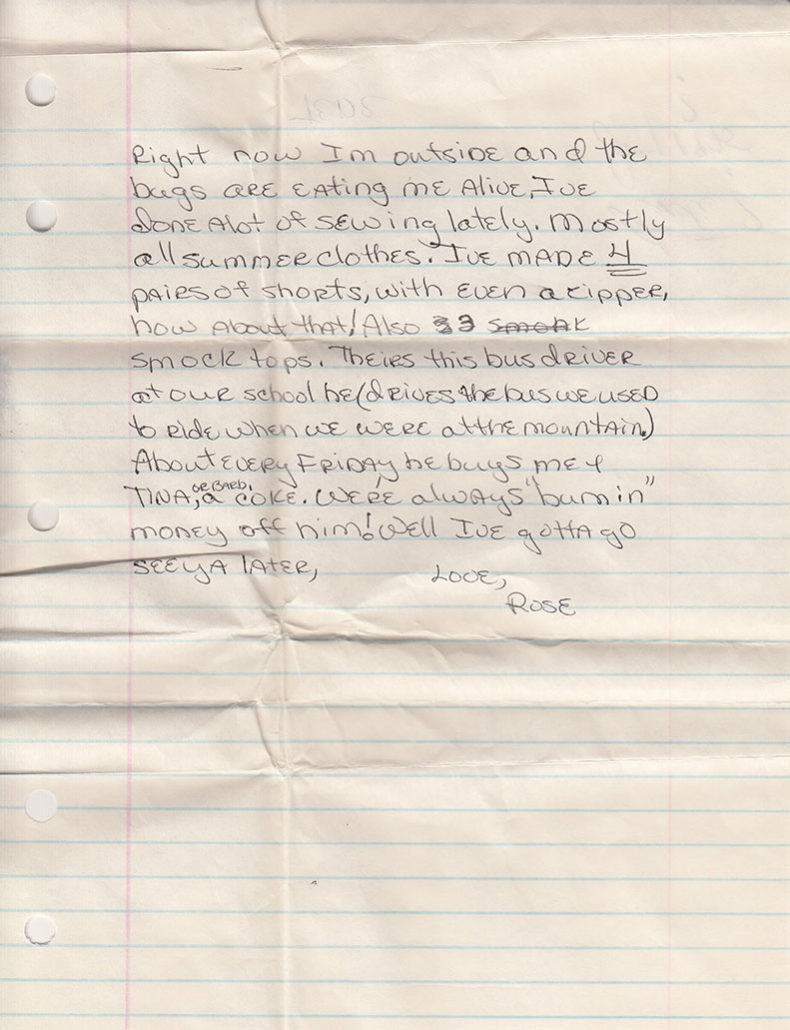 Right now Im outside and the
bugs are eating me alive, Ive
done alot of sewing lately. Mostly
all summer clothes. Ive made 4
pairs of shorts, with even a zipper,
how about that! Also 3 smock
smock tops. Theirs this bus driver
at our school he (drives the bus we used
to ride when we were at the mountain.)
About every Friday he buys me &
Tina, or Barb, a coke. We're always "bumin"
money off him! Well Ive gotta go
see ya later, Love,
Rose